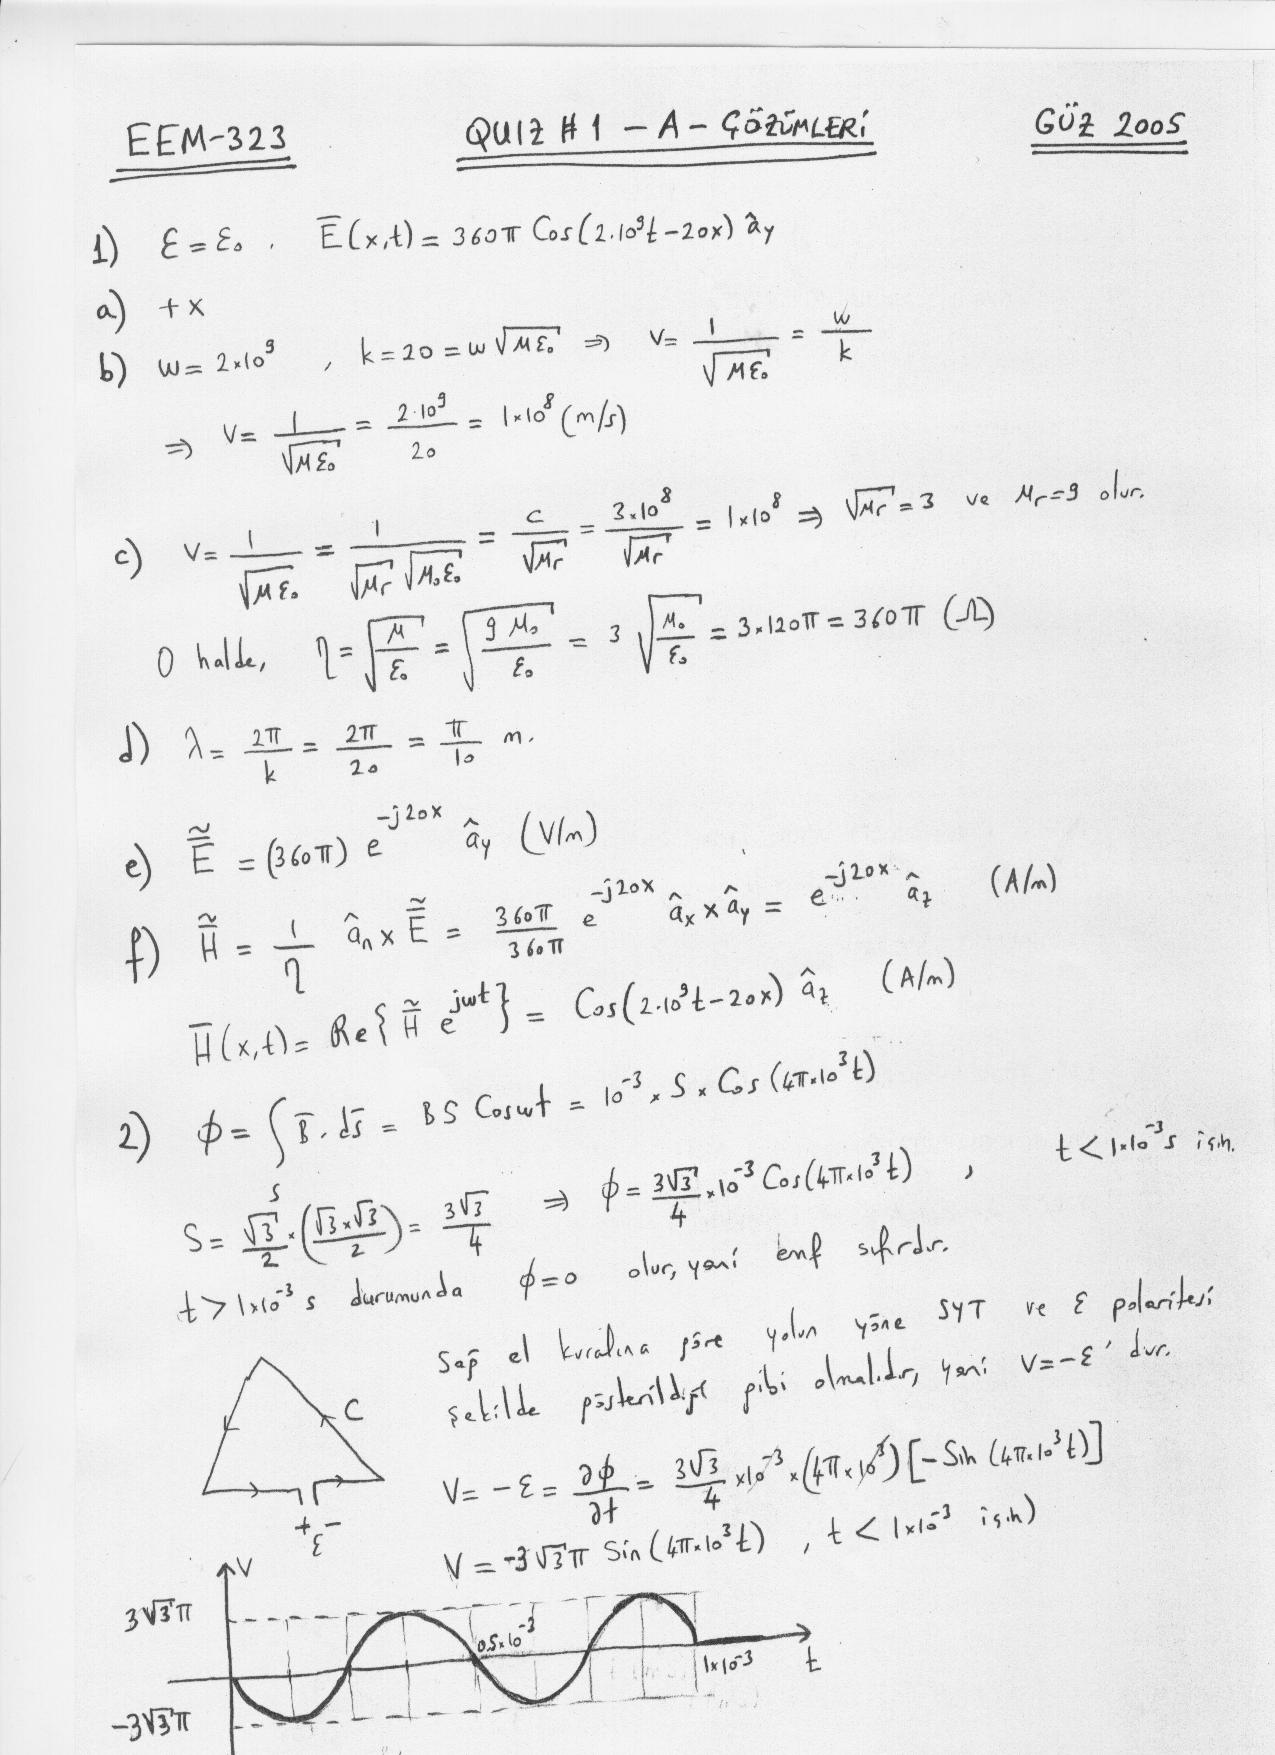 EEM-323 QUIZ #1 - A - ÇÖZÜMLERİ GÜZ 2005
1) ε = ε₀ . E̅(x,t) = 360π Cos(2.10⁹t-20x) â_y
a) +x
b) w = 2×10⁹ , k = 20 = w √(με₀) ⇒ v = 1/√(με₀) = w/k
⇒ v = 1/√(με₀) = 2·10⁹/20 = 1×10⁸ (m/s)
c) v = 1/√(με₀) = 1/(√μr √(μ₀ε₀)) = c/√μr = 3×10⁸/√μr = 1×10⁸ ⇒ √μr = 3 ve μr = 9 olur.
O halde, η = √(μ/ε₀) = √(9μ₀/ε₀) = 3 √(μ₀/ε₀) = 3×120π = 360π (Ω)
d) λ = 2π/k = 2π/20 = π/10 m.
e) Ẽ̅ = (360π) e^(-j20x) â_y (V/m)
f) H̃̅ = 1/η â_n × Ẽ̅ = 360π/360π e^(-j20x) â_x × â_y = e^(-j20x) â_z (A/m)
H̅(x,t) = Re{H̃̅ e^(jwt)} = Cos(2.10⁹t-20x) â_z (A/m)
2) ϕ = ∫_S B̅ . ds̅ = BS Coswt = 10⁻³ × S × Cos(4π×10³t)
S = √3/2 × (√3×√3/2) = 3√3/4 ⇒ ϕ = 3√3/4 ×10⁻³ Cos(4π×10³t) , t < 1×10⁻³ s için.
t > 1×10⁻³ s durumunda ϕ = 0 olur, yani emf sıfırdır.
Sağ el kuralına göre yolun yöne SYT ve ε polaritesi
şekilde gösterildiği gibi olmalıdır, yani V = -ε' dur.
C
V = -ε = ∂ϕ/∂t = 3√3/4 ×10⁻³ × (4π×10³) [-Sin(4π×10³t)]
+ ε -
V = -3√3π Sin(4π×10³t) , t < 1×10⁻³ için)
V
3√3π
0.5×10⁻³
1×10⁻³
t
-3√3π